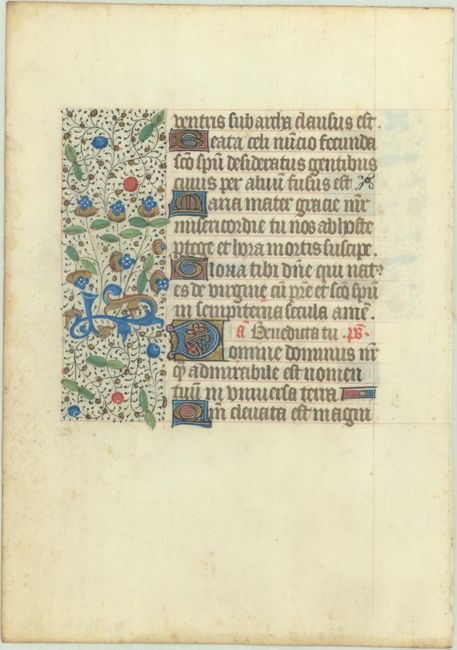 ventris sub archa clausus est.
Beata celi nūcio fecunda
scō spū desideratus gentibus
cuius per aluū fusus est
Maria mater gracie mr̄
misericordie tu nos ab hoste
ptege et hora mortis suscipe.
Gloria tibi dn̄e qui nat⁹
es de virgine cū pr̄e et scō spū
in sempiterna secula amē.
a Benedicta tu. ps.
Domine dominus nr̄
q̄ admirabile est nomen
tuū in vniuersa terra
Qm̄ eleuata est magni